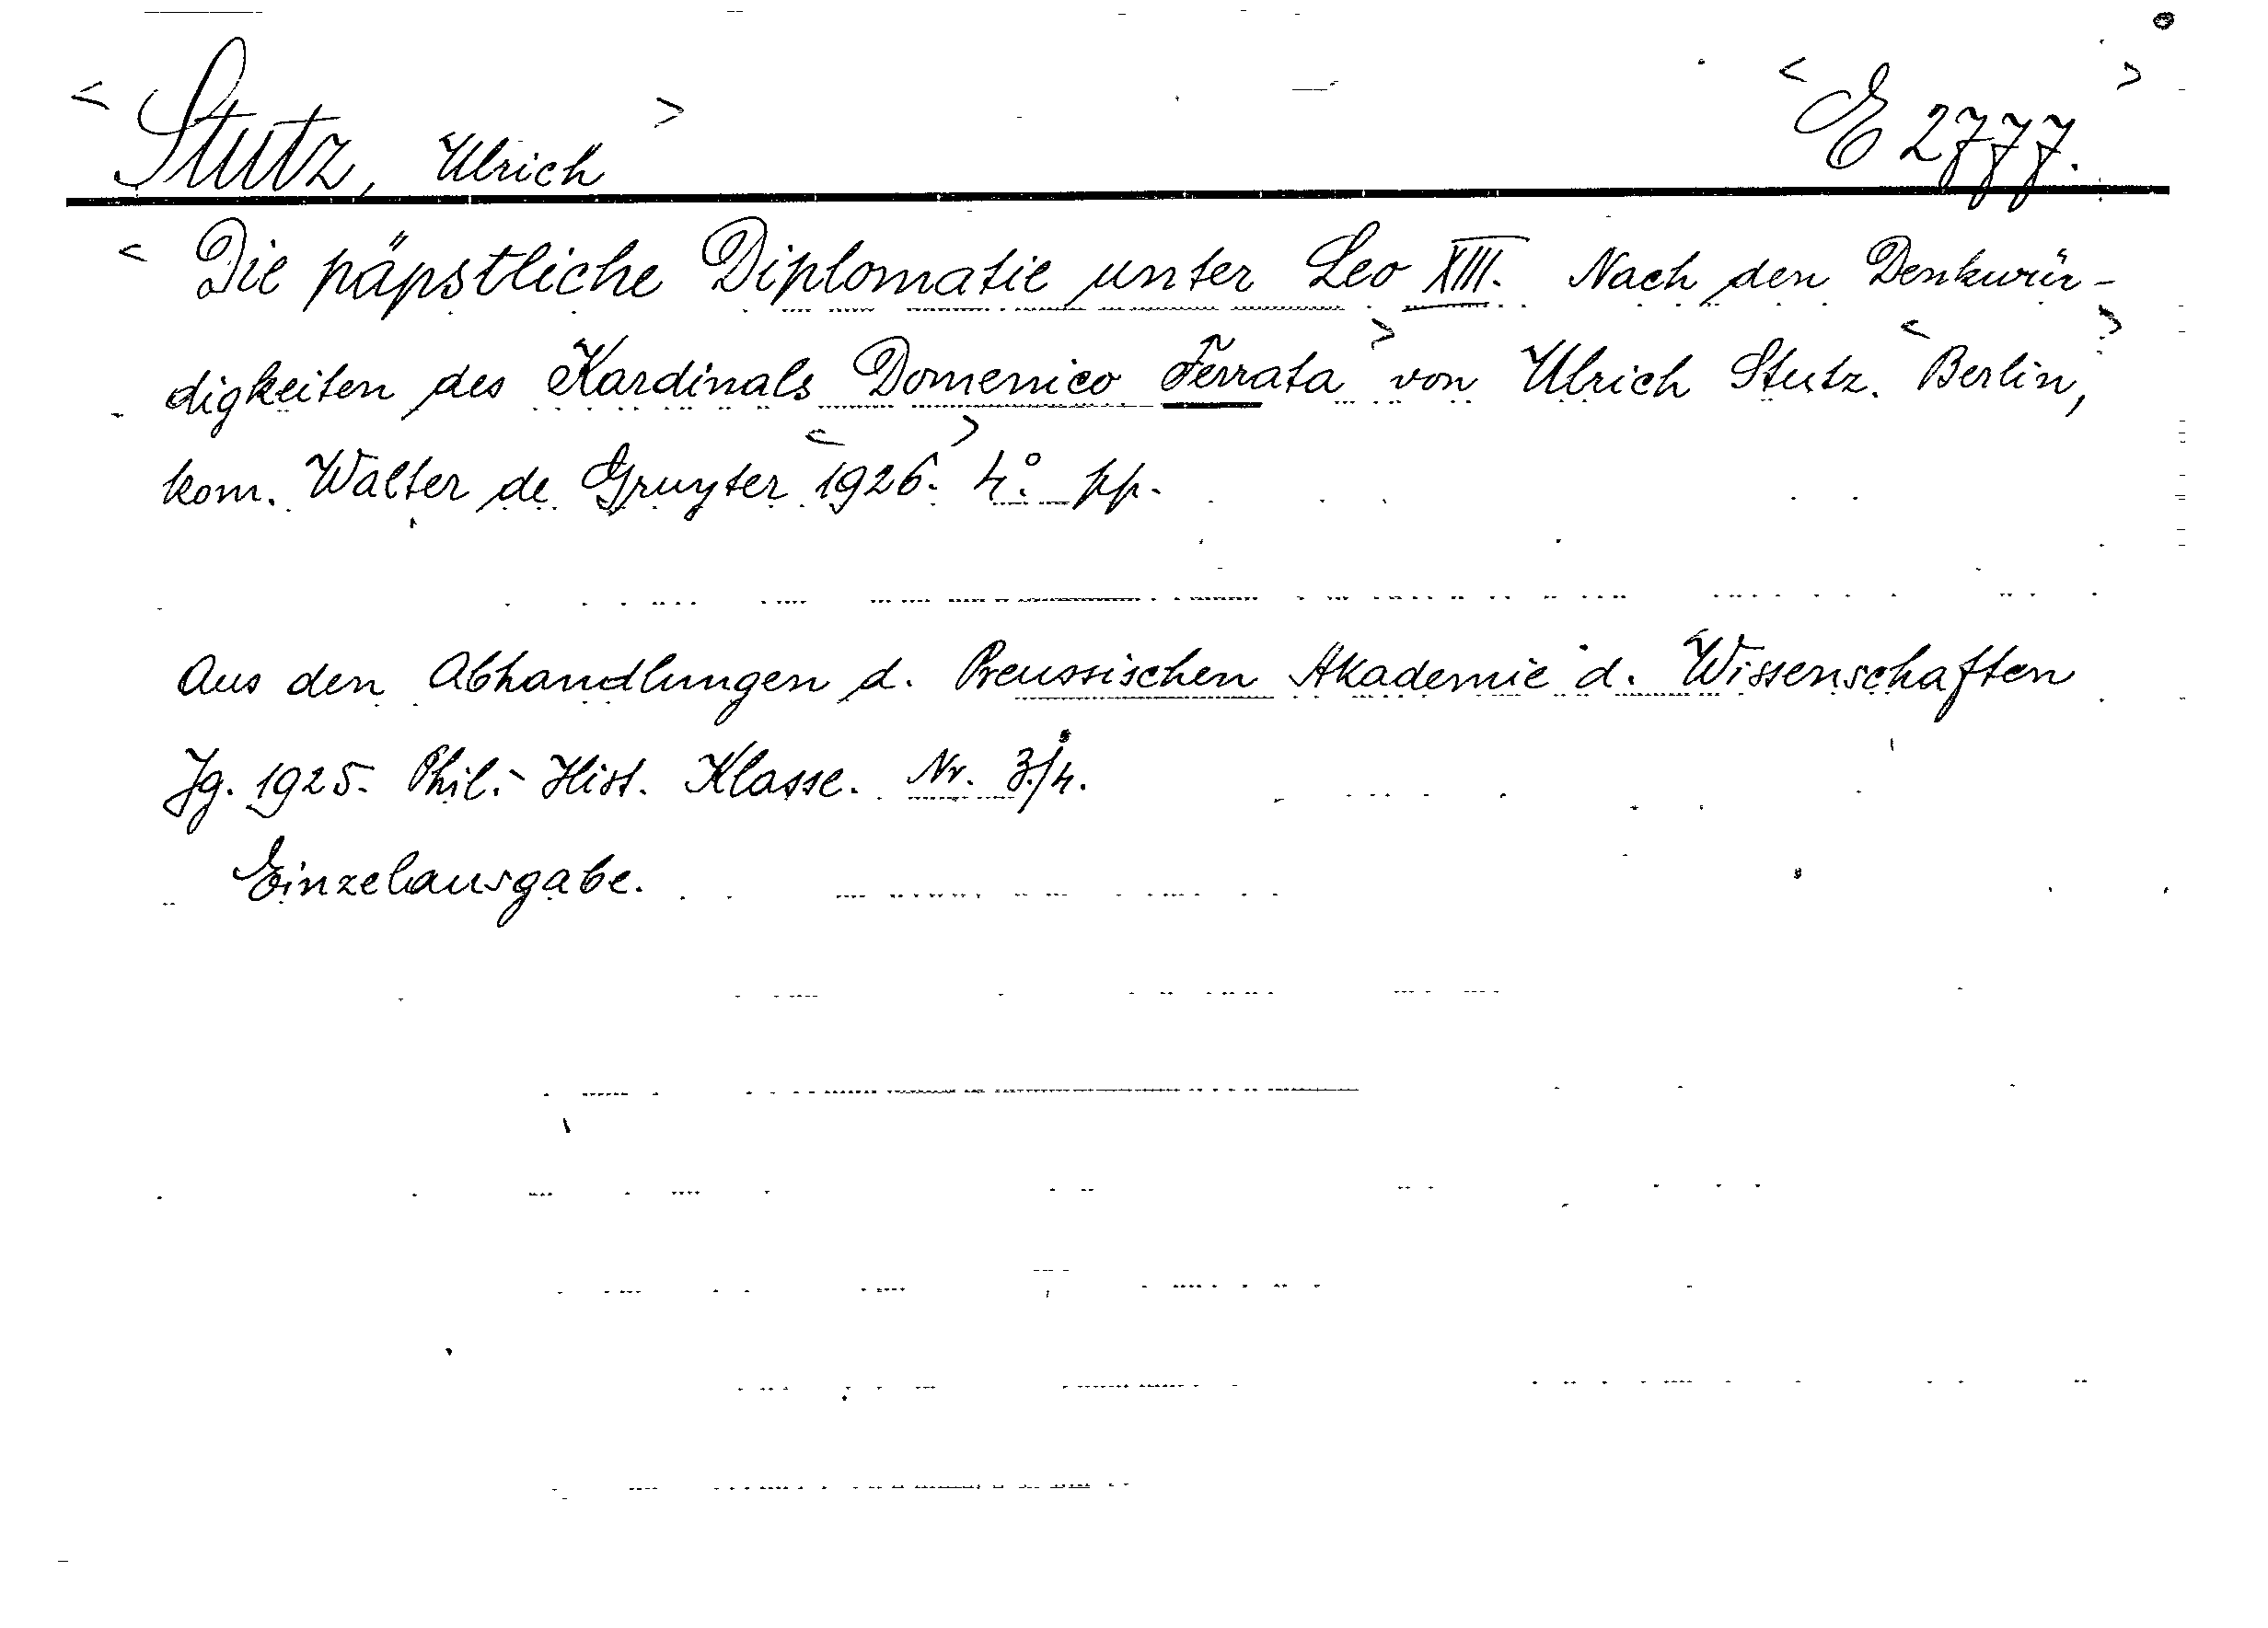 < Stutz, Ulrich > < E 2777. >
< Die päpstliche Diplomatie unter Leo XIII. Nach den Denkwür-
digkeiten des Kardinals Domenico Ferrata > von Ulrich Stutz. < Berlin, >
kom. Walter de Gruyter < 1926. > 4° pp.
Aus den Abhandlungen d. Preussischen Akademie d. Wissenschaften
Jg. 1925. Phil.- Hist. Klasse. Nr. 3./4.
Einzelausgabe.